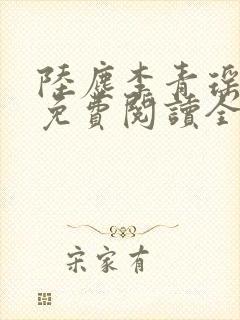 陸塵李青瑤
免費閱讀全
宋家有